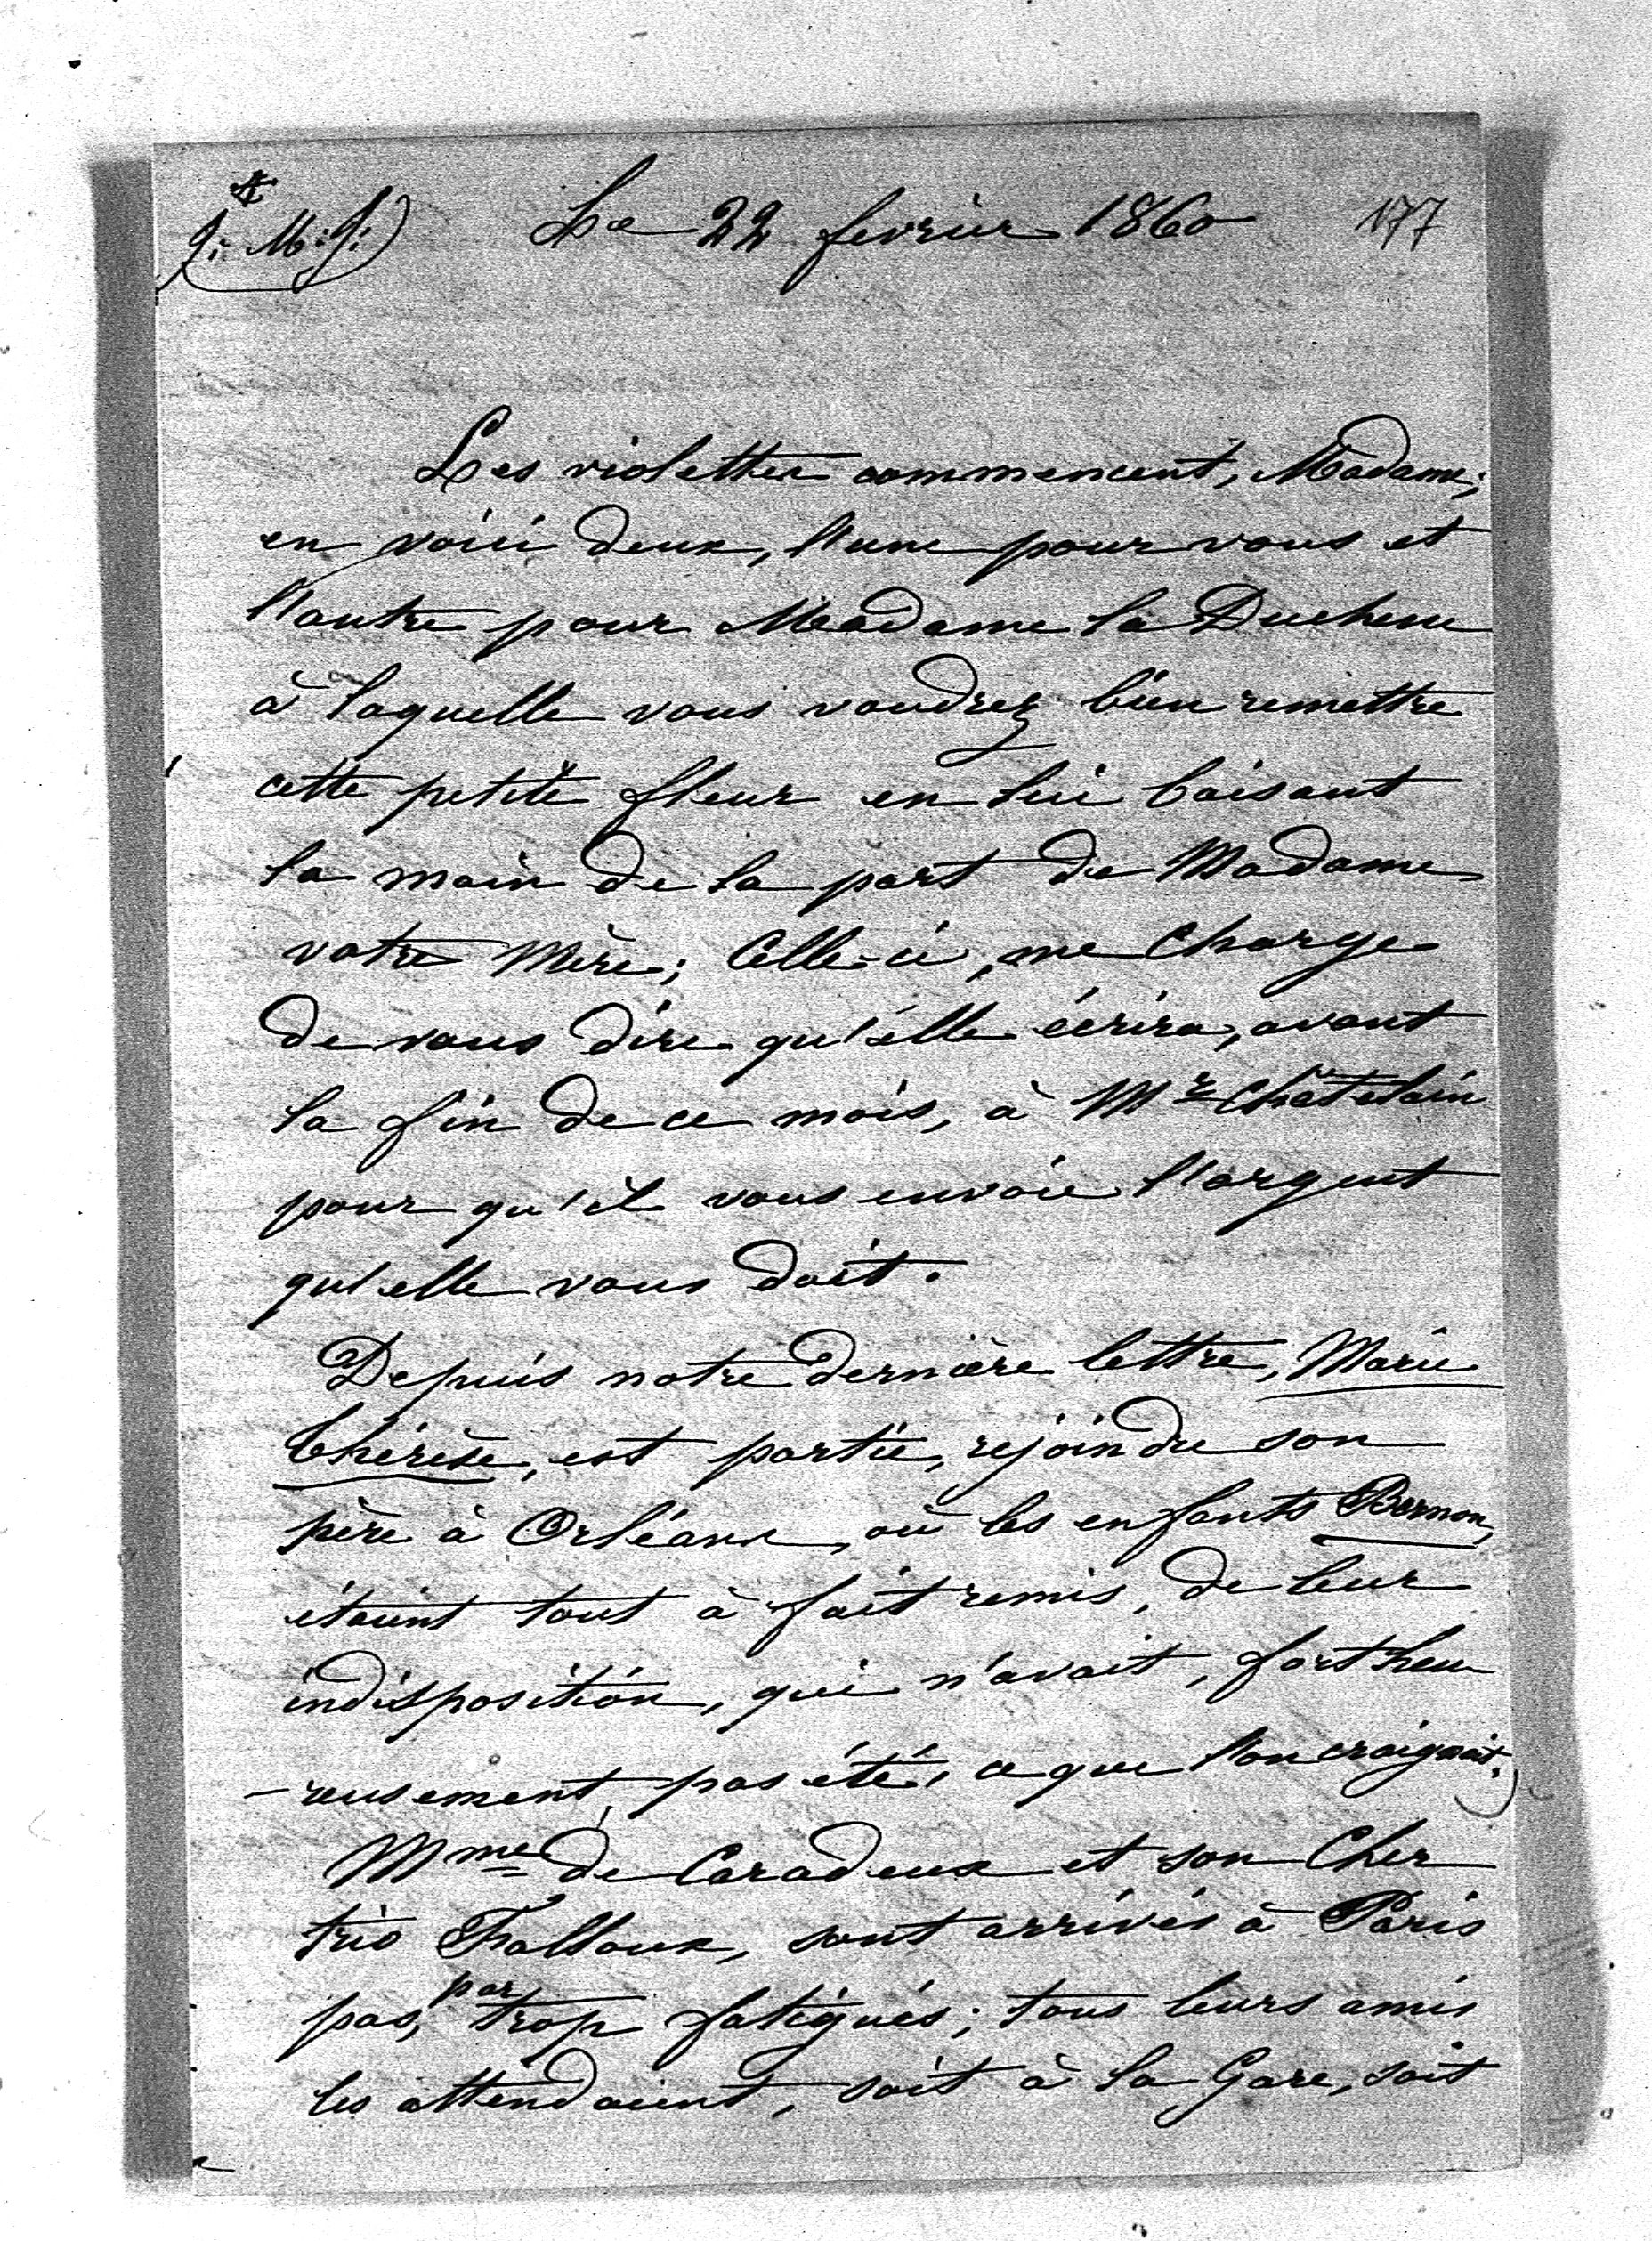 J: M: J:
Le 22 fevrier 1860
177
Les violettes commencent, Madame;
en voici deux, l'une pour vous et
l'autre pour Madame la Duchesse
à laquelle vous voudrez bien remettre
cette petite fleur en lui baisant
la main de la part de Madame
votre Mère; Celle-ci, me Charge
de vous dire qu'elle écrira, avant
la fin de ce mois, à Mr Châtelain
pour qu'il vous envoie l'argent
qu'elle vous doit.
Depuis notre dernière lettre, Marie
Thérèse, est partie, rejoindre son
père à Orléans, où les enfants Bernon,
étaient tout à fait remis, de leur
indisposition, qui n'avait, fort heu
-reusement, pas été, ce que l'on craignait.
Mme de Caradeux et son Cher
trio Falloux, sont arrivés à Paris
pas, par trop fatigués; tous leurs amis
les attendaient, soit à la Gare, soit